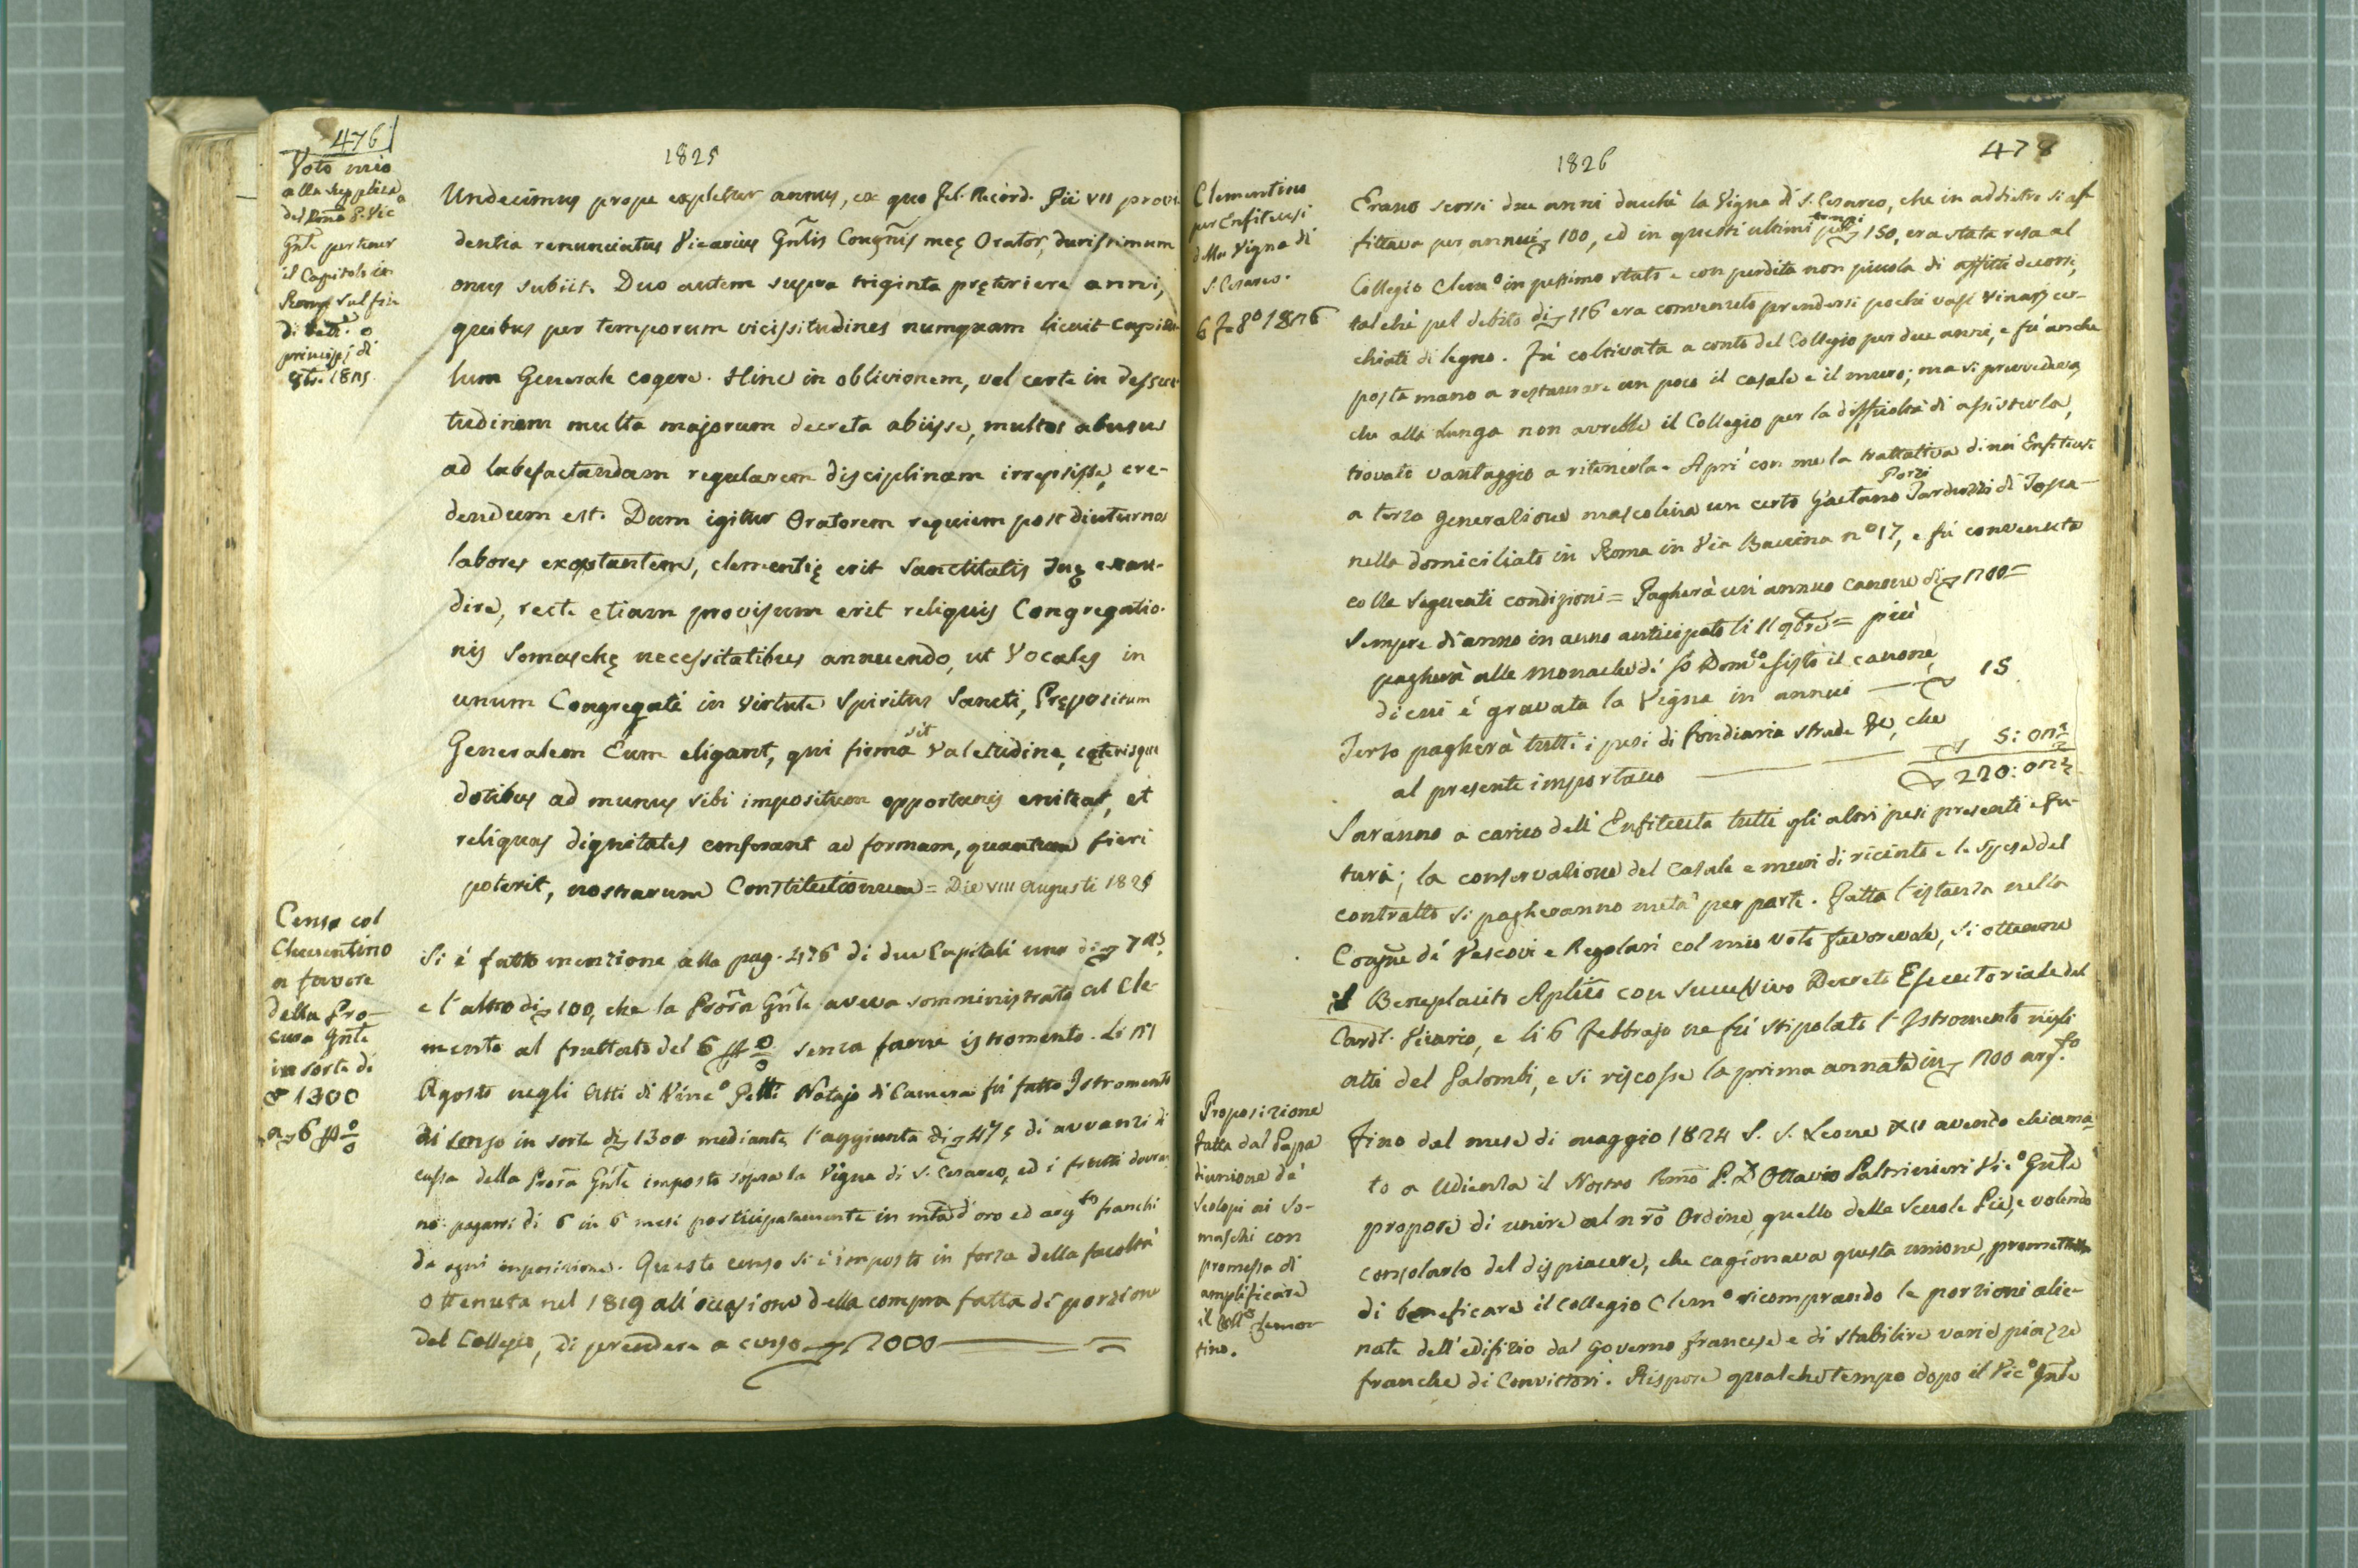 476
1825
Voto mio
alla supplica
del Rmo P. Vic.o
Gnle per tener
il Capitolo in
Roma sul fin
di Sett.e o
principj di
8bre 1825
Undecimus prope expletur annus, ex quo Fel. Record. Pii VII provi
dentia renunciatus Vicarius Gnlis Congnis meę Orator, durissimum
onus subiit. Duo autem supra triginta pręteriere anni,
quibus per temporum vicissitudines numquam licuit Capitu
lum Generale cogere. Hinc in oblivionem, vel certe in dessue
tudinem multa majorum decreta abiisse, multos abusus
ad labefactandam regularem disciplinam irrepsisse, cre-
dendum est. Dum igitur Oratorem requiem post diuturnos
labores exoptantem, clementię erit Sanctitatis Suę exau-
dire, recte etiam provisum erit reliquis Congregatio-
nis Somaschę necessitatibus annuendo, ut Vocales in
unum Congregati in virtute Spiritus Sancti, Prępositum
Generalem Eum eligant, qui firma sit valetudine, cęterisque
dotibus ad munus sibi impositum opportunis eniteat, et
reliquas dignitates conferant ad formam, quantum fieri
poterit, nostrarum Constitutionum = Die VIII Augusti 1825
Censo col
Clementino
a favore
della Pro-
cura Gnle
in sorte di
1300
a 6 p %
Si é fatto menzione alla pag. 476 di due Capitali uno di 725
e l'altro di 100, che la Procra Gnle aveva somministrato al Cle-
mento al fruttato del 6 p % senza farne istromento. Li 21
Agosto negli Atti di Vinc.o Notajo di Camera fú fatto Istromento
di Censo in sorte di 1300 mediante l'aggiunta di 475 di avvanzi di
cassa della Procra Gnle imposto sopra la Vigna di S. Cesareo, ed i frutti dovran
no pagarsi di 6 in 6 mesi posticipatamente in mta d'oro ed arg.to franchi
da ogni imposizione. Questo censo si é imposto in forza della facoltà
ottenuta nel 1819 all'occasione della compra fatta di porzione
del Collegio, di prendere a censo 2000
478
1826
Clementino
per Enfiteusi
della Vigna di
S. Cesareo.
6 Feb.o 1826
Erano scorsi due anni dacchè la Vigna di S. Cesareo, che in addietro si af
fittava per annui 100, ed in questi ultimi tempi per 150, era stata resa al
Collegio Clem.o in pessimo stato e con perdita non piccola di affitti decorsi,
talchè pel debito di 116 era convenuto prendersi pochi vasi vinarj cer-
chiati di legno. Fú coltivata a conto del Collegio per due anni, e fú anche
posta mano a restaurare un poco il casale e il muro; ma si prevvedeva,
che alla lunga non avrebbe il Collegio per la difficoltà di assisterla,
trovato vantaggio a ritenerla. Aprì con me la trattativa di un' Enfiteusi
a terza generazione mascolina un certo Gaetano Porzi Tarduzzi di Topa-
nella domiciliato in Roma in Via Baccina n.o 17, e fú convenuta
colle seguenti condizioni = Pagherà un' annuo canone di 200 =
sempre di anno in anno anticipato li 11 9bre = più
pagherà alle Monache di SS Dom.co e Sisto il canone
di cui é gravata la Vigna in annui — 15
Terzo pagherà tutti i pesi di fondiaria strade &c, che
al presente importano — 5: 02½
220: 02½
Saranno a carico dell' Enfiteuta tutti gli altri pesi presenti e fu-
turi; la conservazione del Casale e muri di ricinto e le spese del
contratto si pagheranno metà per parte. Fatta l'istanza nella
Congne de' Vescovi e Regolari col mio voto favorevole, si ottenne
il Beneplacito Aplico con successivo Decreto Esecutoriale del
Card.l Vicario, e li 6 Febbrajo ne fú stipolato l'Istromento negli
atti del Palombi, e si riscosse la prima annata in 200 arg.to
Proposizione
fatta dal Papa
di unione de'
Scolopi ai So-
maschi con
promessa di
amplificare
il Coll.o Clemen
tino.
Fino dal mese di maggio 1824 S. S. Leone XII avendo chiama-
to a Udienza il Nostro Rmo P. D. Ottavio Paltrinieri Vic.o Gnle
propose di unire al nro Ordine, quello delle Scuole Pie, e volendo
consolarlo del dispiacere, che cagionava questa unione, promettea
di beneficare il Collegio Clem.o ricomprando le porzioni alie-
nate dell'edifizio dal Governo francese e di stabilire varie piazze
franche di Convittori. Rispose qualche tempo dopo il Vic.o Gnle